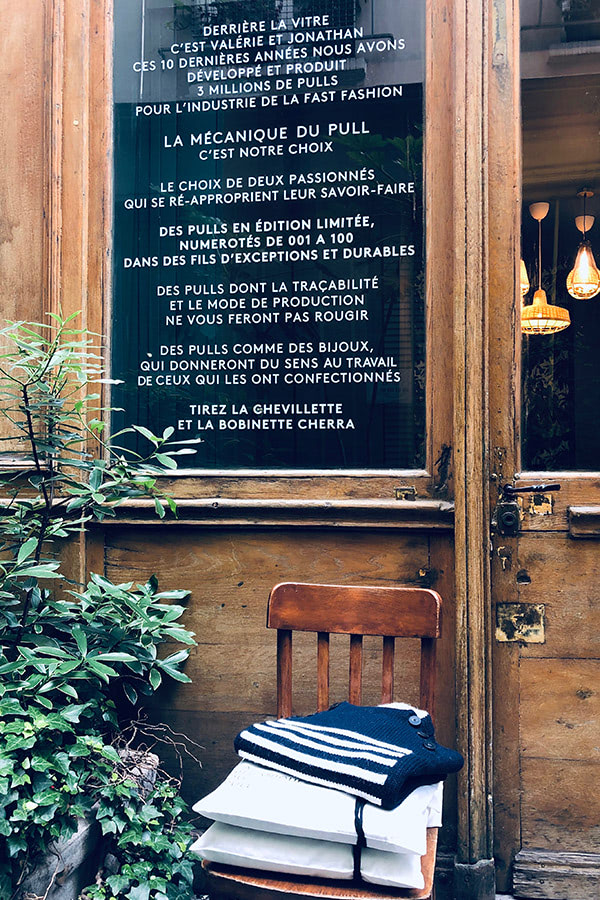 DERRIÈRE LA VITRE
C'EST VALÉRIE ET JONATHAN
CES 10 DERNIÈRES ANNÉES NOUS AVONS
DÉVELOPPÉ ET PRODUIT
3 MILLIONS DE PULLS
POUR L'INDUSTRIE DE LA FAST FASHION
LA MÉCANIQUE DU PULL
C'EST NOTRE CHOIX
LE CHOIX DE DEUX PASSIONNÉS
QUI SE RÉ-APPROPRIENT LEUR SAVOIR-FAIRE
DES PULLS EN ÉDITION LIMITÉE,
NUMEROTÉS DE 001 A 100
DANS DES FILS D'EXCEPTIONS ET DURABLES
DES PULLS DONT LA TRAÇABILITÉ
ET LE MODE DE PRODUCTION
NE VOUS FERONT PAS ROUGIR
DES PULLS COMME DES BIJOUX,
QUI DONNERONT DU SENS AU TRAVAIL
DE CEUX QUI LES ONT CONFECTIONNÉS
TIREZ LA CHEVILLETTE
ET LA BOBINETTE CHERRA